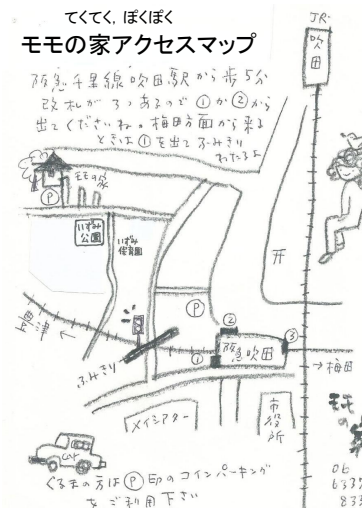 てくてく，ぽくぽく
モモの家アクセスマップ
JR
吹田
阪急千里線吹田駅から歩5分
改札が3つあるので①か②から
出てくださいね。梅田方面から来る
ときは①を出てふみきり
わたるよ
モモの家
P
いずみ
公園
いずみ
保育園
P
②
③
①
阪急吹田
豊津 ←
ふみきり
→ 梅田
メイシアター
市役所
モモ
の
家
06
car
くるまの方はP印のコインパーキング
をご利用下さい